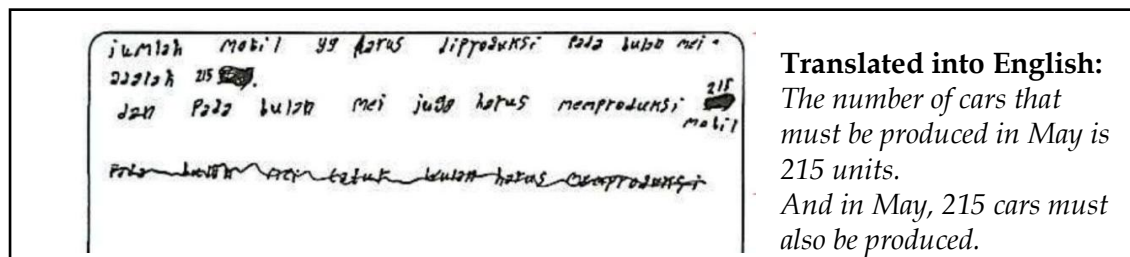 jumlah mobil yg harus diproduksi pada bulan mei.
adalah 215
dan pada bulan mei juga harus memproduksi 215
mobil
Pada bulan mei harus memproduksi
Translated into English:
The number of cars that
must be produced in May is
215 units.
And in May, 215 cars must
also be produced.